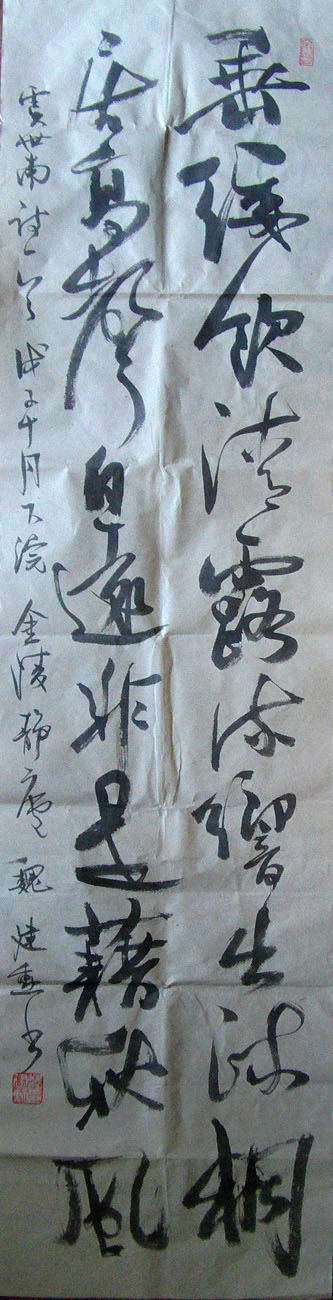 垂緌飲清露流響生疏桐
居高聲自遠非是藉秋風
虞世南詩一首 戊子十月下浣 金陵静廬 魏建 書